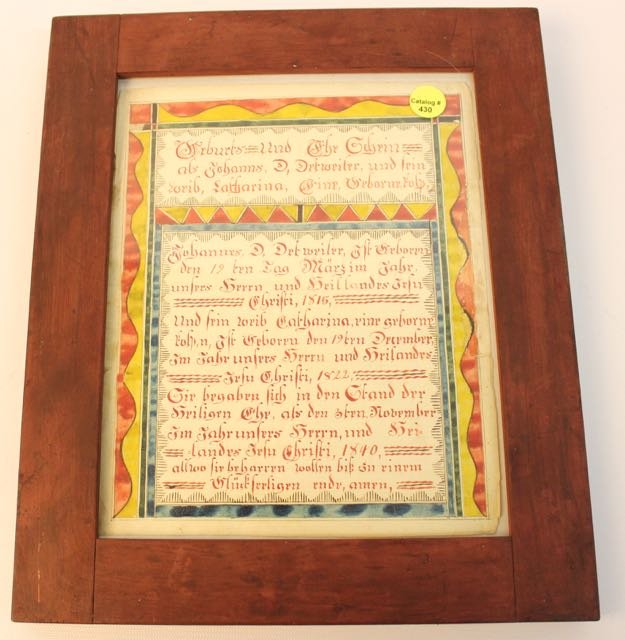 Catalog #
430
Geburts= Und Ehe Schein=
als Johanns, D, Detweiler, und sein
weib, Catharina, Eine, Geborne kolb,
Johannes, D, Detweiler, Ist Geboren
den 12 ten Tag März im Jahr
unsers Herrn und Heillandes Jesu
Christi, 1816,
Und sein weib Catharina, eine geborne
kolb,n, Ist Geboren den 19ten December
Im Jahr unsers Herrn und Heilandes
Jesu Christi, 1822,
Sie begaben sich in den Stand der
Heiligen Ehe, als den 3ten November
Im Jahr unsers Herrn, und Hei=
landes Jesu Christi, 1840,
allwo sie beharren wollen biß zu einem
Glückseeligen ende, amen,